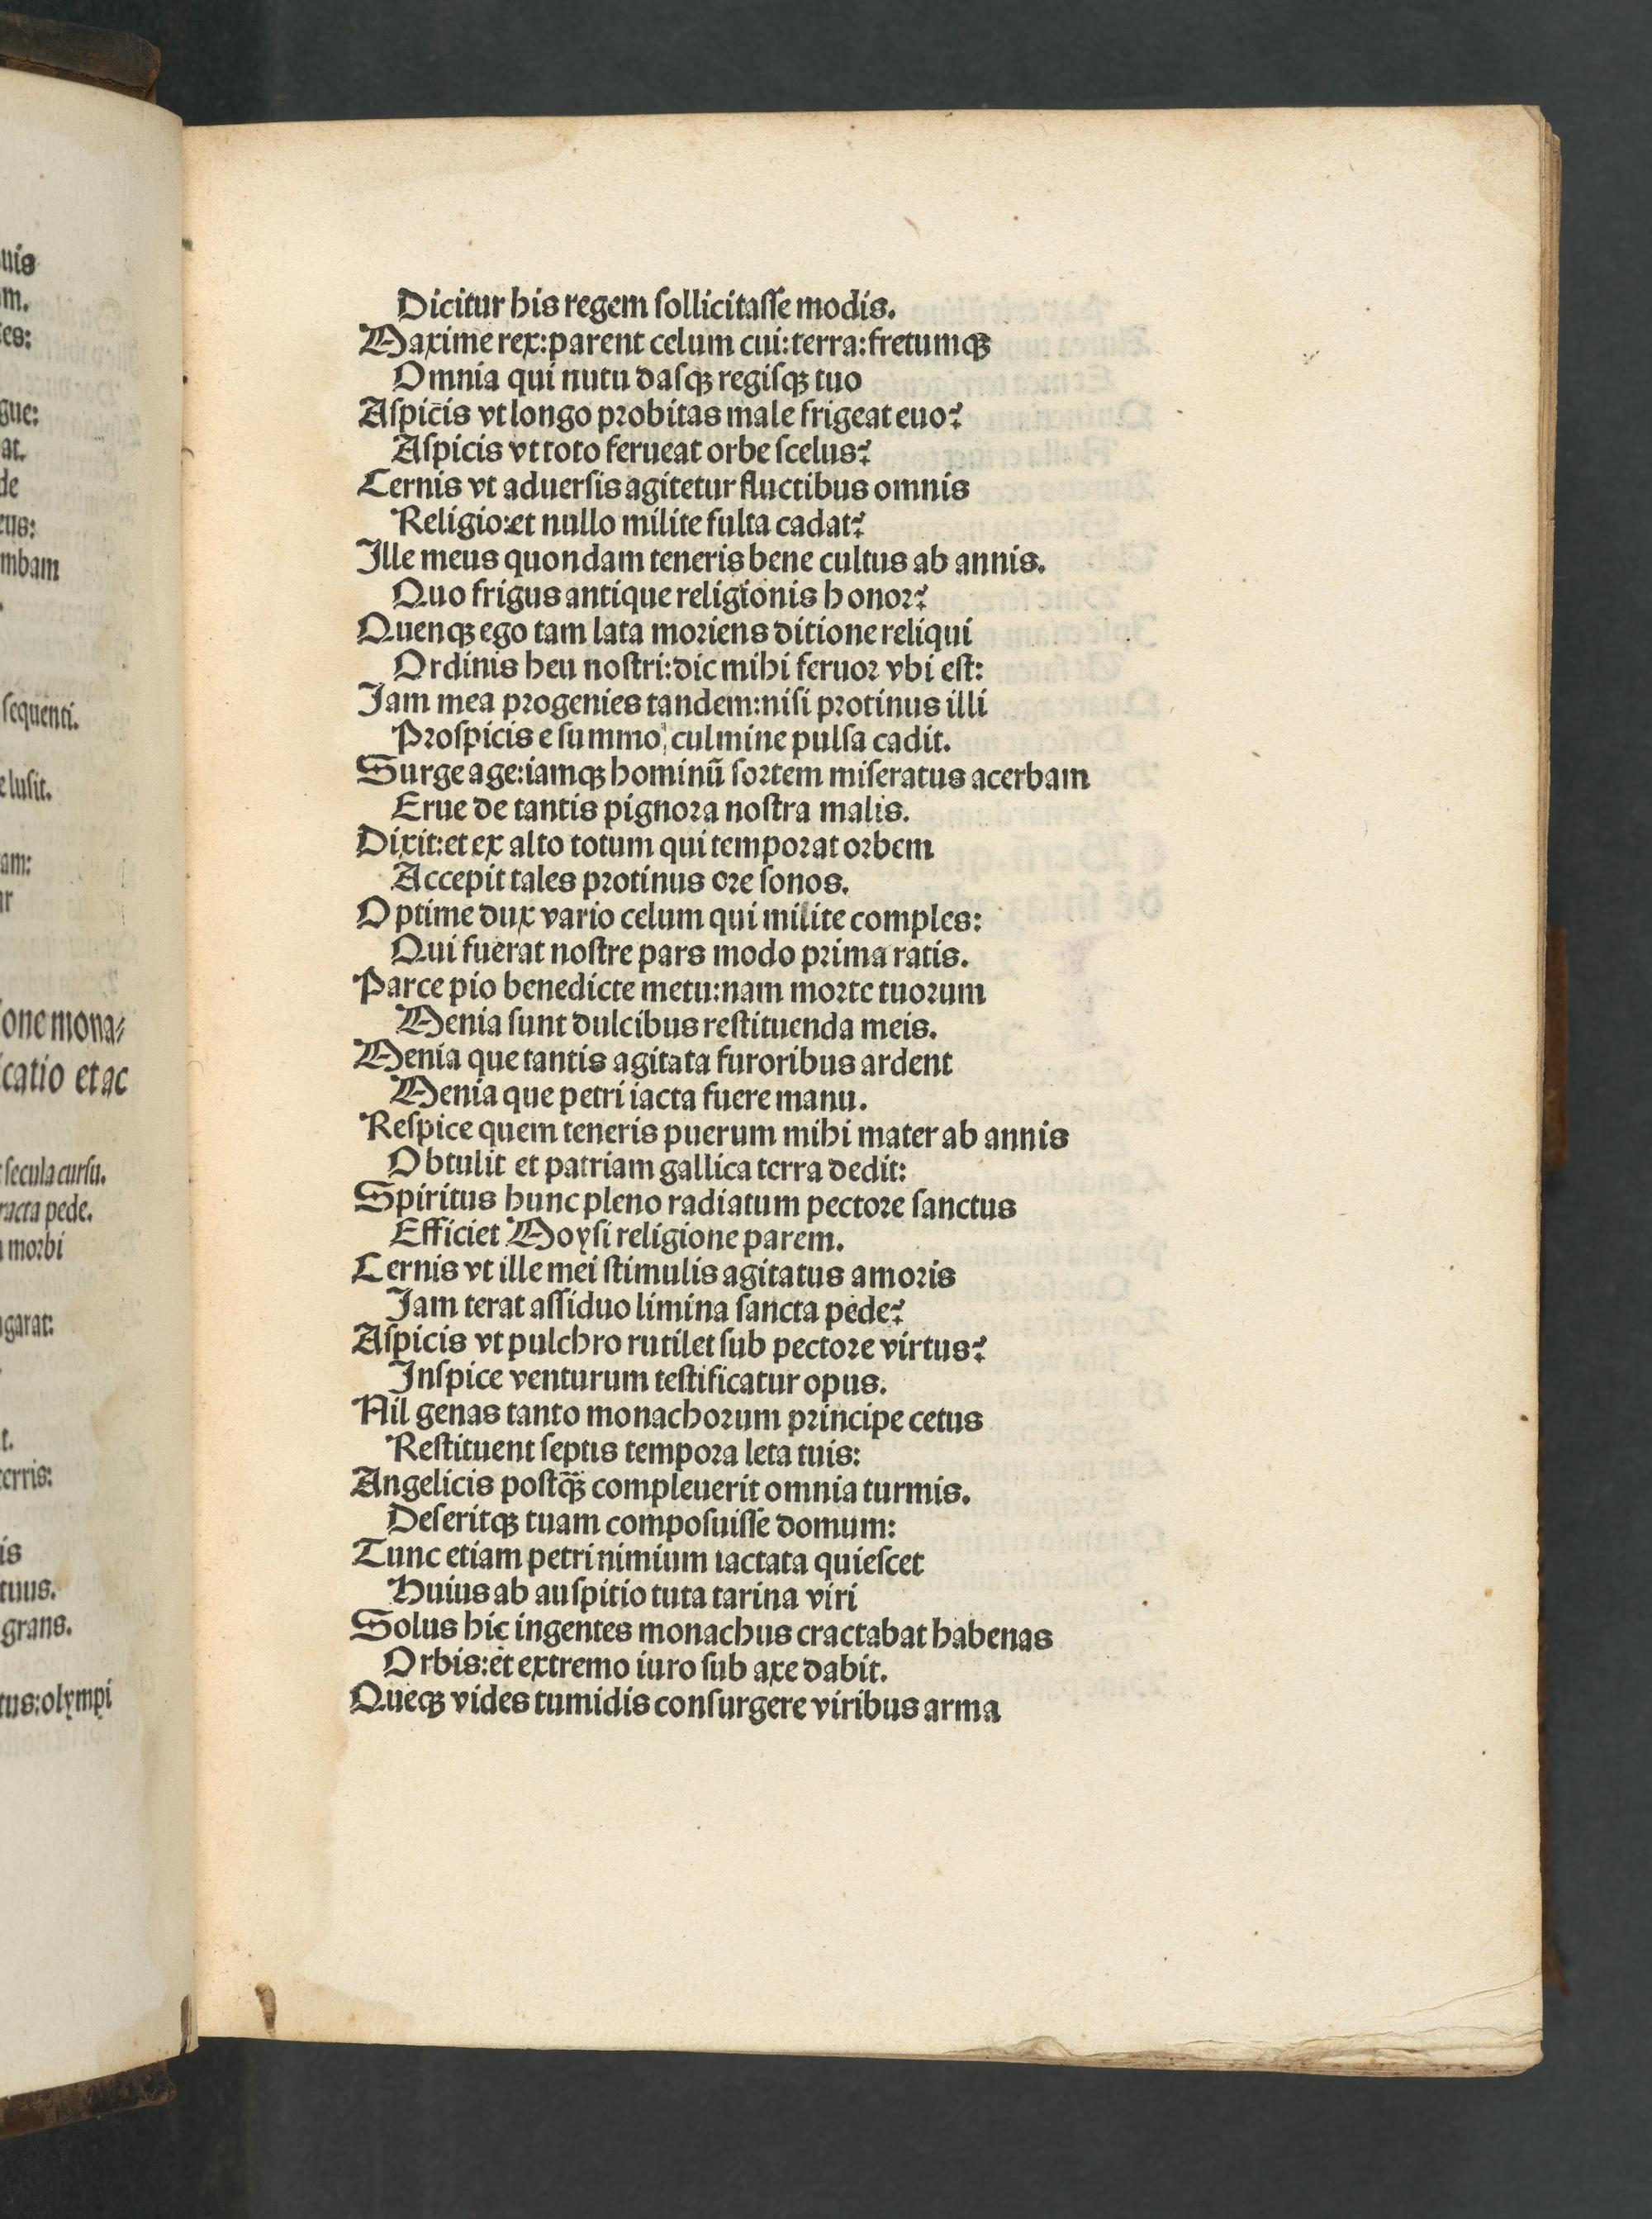 uis
m.
es:
gue:
at.
de
eus:
mbam
sequenti.
e lusit.
am:
ur
one mona⸗
catio et ac
secula cursu.
racta pede.
morbi
garat:
t.
terris:
is
tuus.
grans.
tus:olympi
Dicitur his regem ſollicitaſſe modis.
Maxime rex:parent celum cui:terra:fretumqꝫ
Omnia qui nutu daſqꝫ regiſqꝫ tuo
Aſpicis vt longo probitas male frigeat euo?
Aſpicis vt toto ferueat orbe ſcelus?
Cernis vt aduerſis agitetur fluctibus omnis
Religio:et nullo milite fulta cadat?
Ille meus quondam teneris bene cultus ab annis.
Quo frigus antique religionis honor?
Quenqꝫ ego tam lata moriens ditione reliqui
Ordinis heu noſtri:dic mihi feruor vbi eſt:
Jam mea progenies tandem:niſi protinus illi
Proſpicis e ſummo culmine pulſa cadit.
Surge age:iamqꝫ hominū ſortem miſeratus acerbam
Erue de tantis pignora noſtra malis.
Dixit:et ex alto totum qui temporat orbem
Accepit tales protinus ore ſonos.
Optime dux vario celum qui milite comples:
Qui fuerat noſtre pars modo prima ratis.
Parce pio benedicte metu:nam morte tuorum
Menia ſunt dulcibus reſtituenda meis.
Menia que tantis agitata furoribus ardent
Menia que petri iacta fuere manu.
Reſpice quem teneris puerum mihi mater ab annis
Obtulit et patriam gallica terra dedit:
Spiritus hunc pleno radiatum pectore ſanctus
Efficiet Moyſi religione parem.
Cernis vt ille mei ſtimulis agitatus amoris
Jam terat aſſiduo limina ſancta pede?
Aſpicis vt pulchro rutilet ſub pectore virtus?
Inſpice venturum teſtificatur opus.
Nil genas tanto monachorum principe cetus
Reſtituent ſeptis tempora leta tuis:
Angelicis poſtqꝫ̄ compleuerit omnia turmis.
Deſeritqꝫ tuam compoſuiſſe domum:
Tunc etiam petri nimium iactata quieſcet
Huius ab auſpitio tuta tarina viri
Solus hic ingentes monachus cractabat habenas
Orbis:et extremo iuro ſub axe dabit.
Queqꝫ vides tumidis conſurgere viribus arma